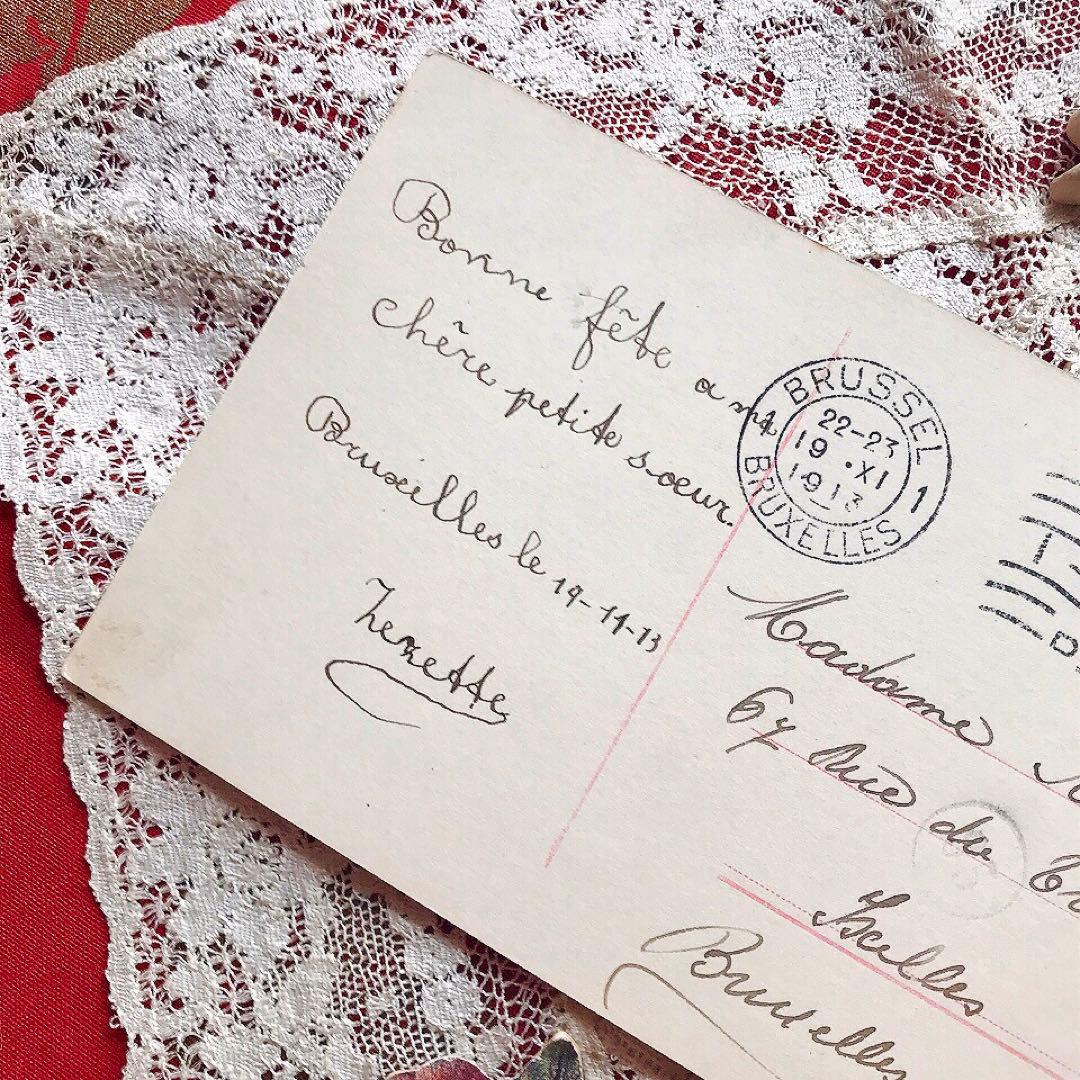 Bonne fête a ma
chère petite sœur.
Bruxelles le 19-11-13
BRUSSEL
22-23
19 · XI
1913
1 BRUXELLES 1
Madame
67 Rue du
Ixelles
Bruxelles